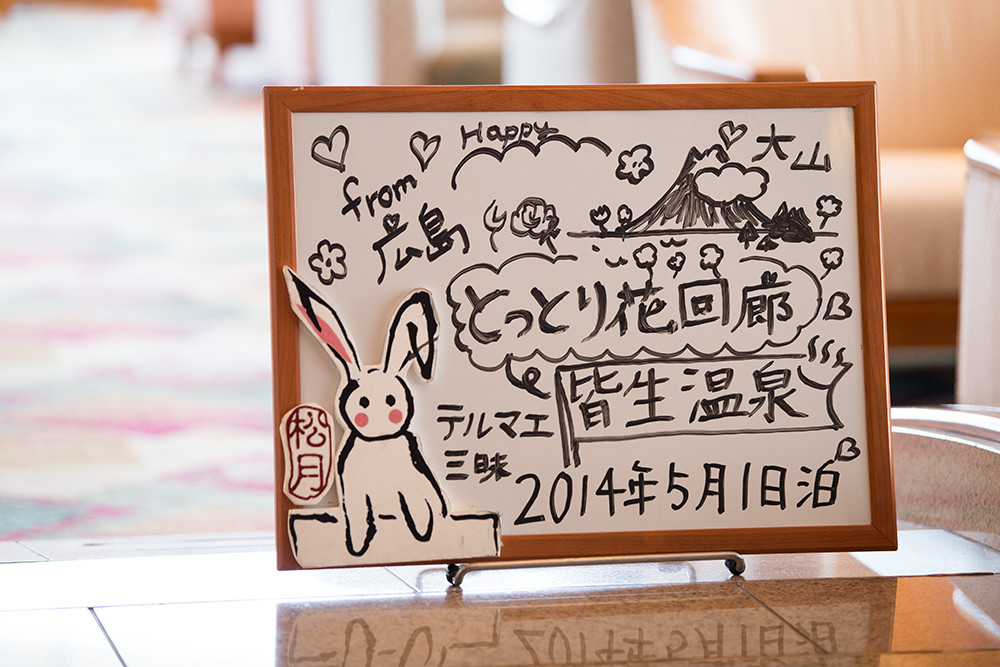 Happy
大山
from
広島
とっとり花回廊
皆生温泉
テルマエ
三昧
2014年5月1日泊
松月